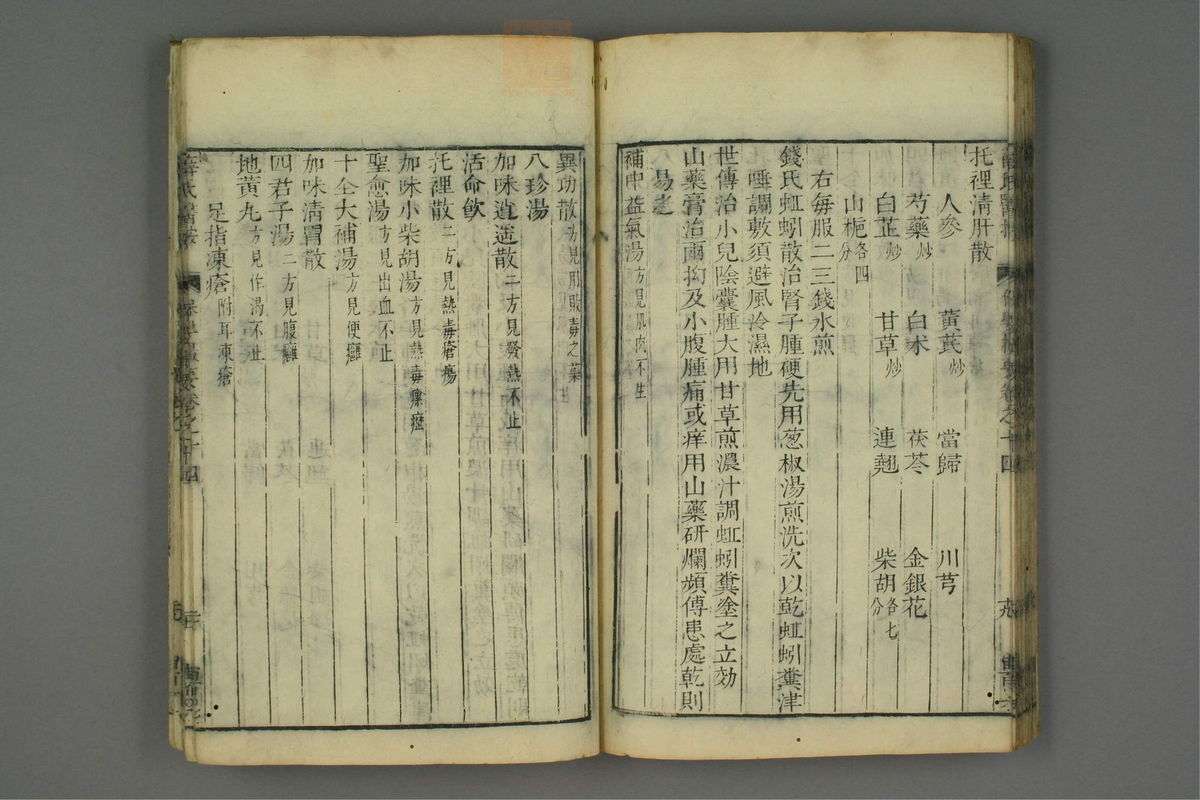 托裡清肝散
人參 黃芪炒 當歸 川芎
芍藥炒 白朮 茯苓 金銀花
白芷炒 甘草炒 連翹 柴胡各七分
山梔各四分
右每服二三錢水煎
錢氏虹蚓散治腎子腫硬先用葱椒湯煎洗次以乾虹蚓糞津
唾調敷須避風冷濕地
世傳治小兒陰囊腫大用甘草煎濃汁調虹蚓糞塗之立効
山藥膏治兩抑及小腹腫痛或痒用山藥研爛頻傅患處乾則
易之
補中益氣湯方見肌肉不生
異功散方見用敗毒之藥
八珍湯
加味逍遥散二方見發熱不止
活命飲
托裡散二方見熱毒瘡瘍
加味小柴胡湯方見熱毒瘰癧
聖愈湯方見出血不止
十全大補湯方見便癰
加味清胃散
四君子湯二方見腹癰
地黃丸方見作渴不止
足指凍瘡附耳凍瘡